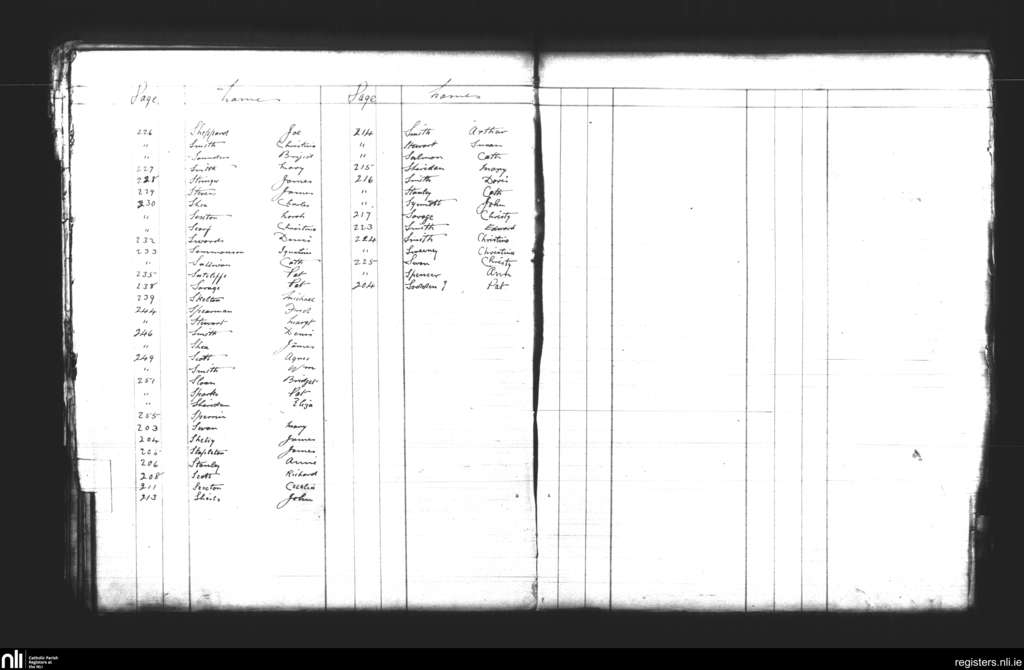 Page Names
226 Sheppard Joe
" Smith Christina
" Saunders Brigid
227 Smith Mary
228 James
229 James
230 Shea Charles
" Sexton
" Christina
232 Swords Denis
233 Ignatius
" Sullivan Cath
235 Sutcliffe Pat
238 Savage Pat
239 Skelton Michael
244 Spearman Fred
" Stewart Margt
246 Smith Denis
" Shea James
249 Scott Agnes
" Smith Wm
251 Sloan Bridget
" Sparks Pat
" Sheridan Eliza
255
203 Swan Mary
204 James
205 Stapleton James
206 Stanley Annie
208 Scott Richard
211 Sexton Cecelia
213 Sheils John
Page Names
214 Smith Arthur
" Stewart Susan
" Salmon Cath
215 Sheridan Mary
216 Smith Denis
" Stanley Cath
" Synnott John
217 Savage Christy
223 Smith Edward
224 Smith Christina
" Sweeney Christina
225 Swan Christy
" Spencer Ann
204 Sodden ? Pat
nli
Catholic Parish
Registers at
the NLI
registers.nli.ie